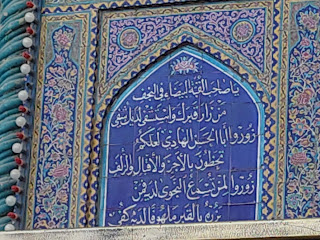 يا صاحب القبة البيضاء في النجف
من زار قبرك واستشفى لديك شفي
زوروا أبا الحسن الهادي لعلكم
تحظون بالأجر والإقبال والزلف
زوروا لمن تسمع النجوى لديه فمن
يزره بالقبر ملهوفا لديه كفي